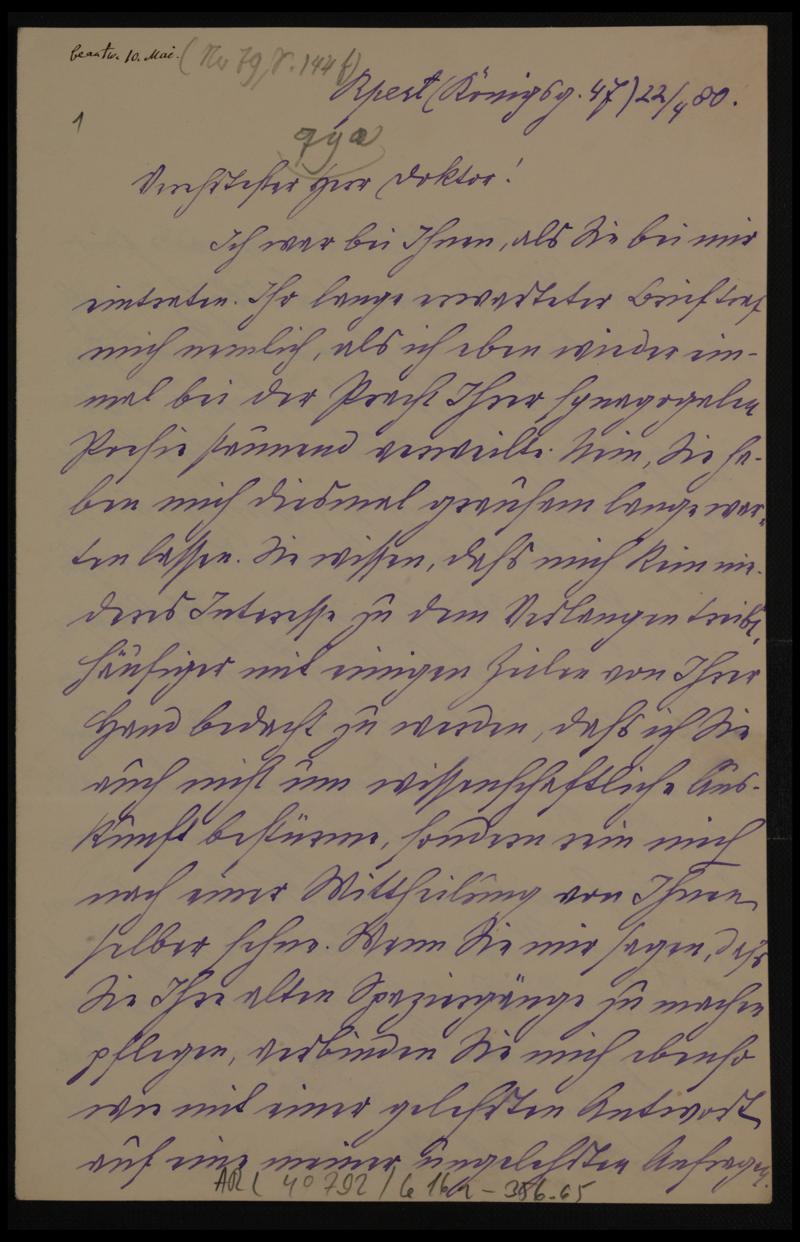 beantw. 10. Mai. (No 79, S. 144 f)
Bpest (Königsg. 47) 22/4 80.
1
79a
Verehrtester Herr Doktor!
Ich war bei Ihnen, als Sie bei mir
eintraten. Ihr lange erwarteter Brief traf
mich nemlich, als ich eben wieder ein-
mal bei der Pracht Ihrer synagogalen
Poesie staunend verweilte. Nein, Sie ha-
ben mich diesmal grausam lange war-
ten lassen. Sie wissen, daß mich kein nie-
deres Interesse zu dem Verlangen treibt,
häufiger mit einigen Zeilen von Ihrer
Hand bedacht zu werden, daß ich Sie
auch nicht um wissenschaftliche Aus-
kunft bestürme, sondern rein mich
nach einer Mittheilung von Ihnen
selber sehne. Wenn Sie mir sagen, daß
Sie Ihre alten Spaziergänge zu machen
pflegen, verbinden Sie mich ebenso
wie mit einer gelehrten Antwort
auf eine meiner ungelehrten Anfragen.
AR ( 4° 792 / G 16